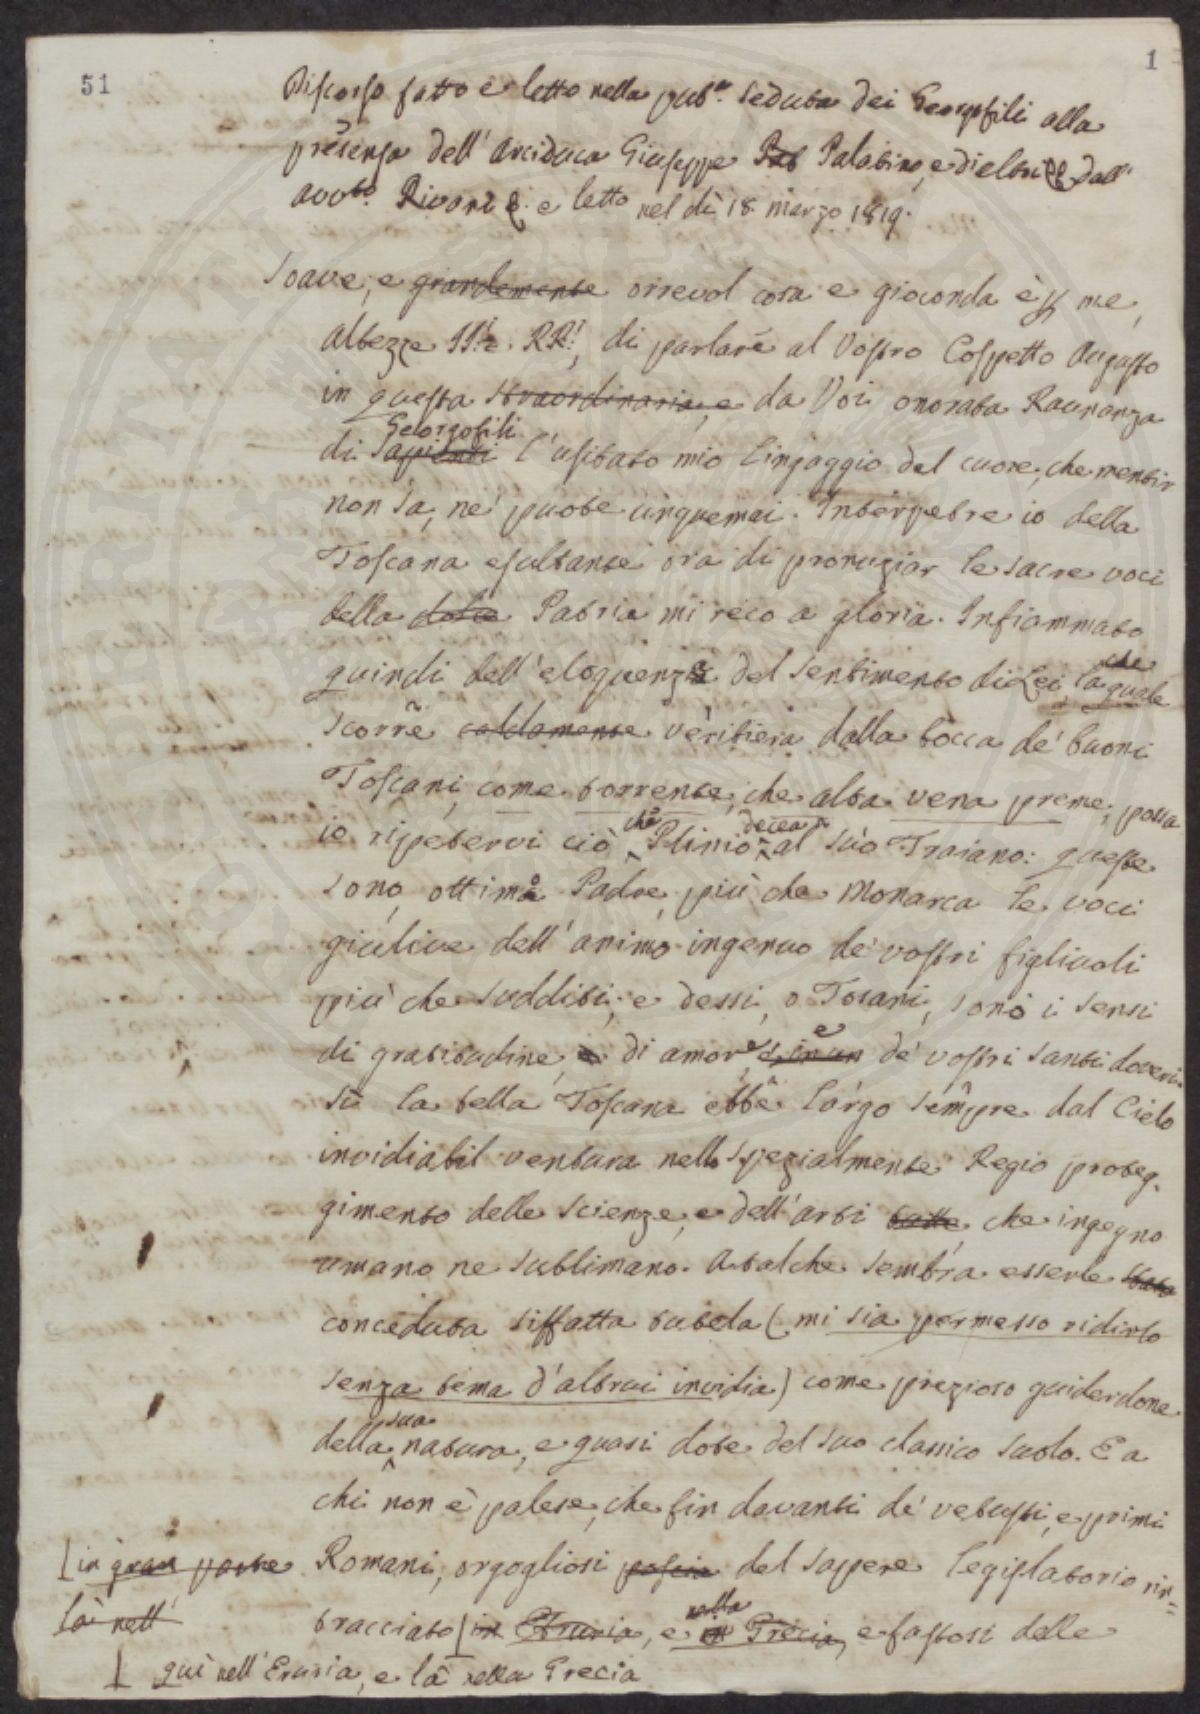 51
1
Discorso fatto e letto nella pub.ca Seduta dei Georgofili alla
presenza dell'Arciduca Giuseppe Pat Palatino, e di altri &c dall'
avv.to Rivani &. e letto nel dì 18. marzo 1819.
Soave, e grandemente orrevol cosa e gioconda è per me,
altezze II. e RR., di parlare al Vostro Cospetto Augusto
in questa straordinaria, e da Voi onorata Raunanza
Georgofili
di Sapienti l'usitato mio linguaggio del cuore, che mentir
non sa, nè puote unquemai. Interpetre io della
Toscana esultante ora di pronuziar le sacre voci
della dolce Patria mi reco a gloria. Infiammato
quindi dell'eloquenza del sentimento di Lei, la quale
che
scorre caldamente veritiera dalla bocca de' buoni
Toscani, come torrente, che alta vena preme, possa
io ripetervi ciò che Plinio dicea al suo Traiano: queste
sono, ottimo Padre, più che Monarca le voci
giulive dell'animo ingenuo de' vostri figliuoli
più che sudditi; e dessi, o Tosani, sono i sensi
di gratitudine, e di amore, e in un e de' vostri santi doveri.
Si la bella Toscana ebbe largo sempre dal Cielo
invidiabil ventura nello spezialmente Regio proteg-
gimento delle Scienze, e dell'arti tutte, che ingegno
umano ne sublimano. A talche sembra esserle stata
conceduta siffatta tutela (mi sia permesso ridirlo
senza tema d'altrui invidia) come prezioso guiderdone
della sua natura, e quasi dote del suo classico suolo. E a
chi non è palese, che fin davanti de' vetusti, e primi
[in gran parte Romani, orgogliosi poscia del sapere legislatorio rin=
là nell' tracciato [in Etruria, e in nella Grecia, e fastosi delle
[ quì nell'Eruria, e là nella Grecia